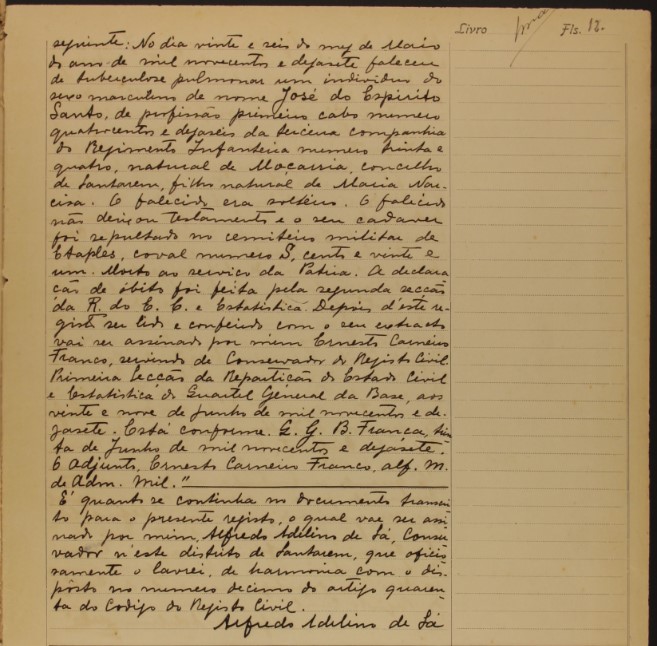 Livro
Fls. 12.
seguinte: No dia vinte e seis do mez de Maio
do ano de mil novecentos e dezasete faleceu
de tuberculose pulmonar um individuo do
sexo masculino de nome José do Espirito
Santo, de profissão primeiro cabo numero
quatrocentos e dezaseis da terceira companhia
do Regimento Infanteria numero trinta e
quatro, natural de Moçarria, concelho
de Santarem, filho natural de Maria Nar-
cisa. O falecido era solteiro. O falecido
não deixou testamento e o seu cadaver
foi sepultado no cemiterio militar de
Etaples, coval numero S, cento e vinte e
um. Morto ao serviço da Patria. A declara
ção de óbito foi feita pela segunda secção
da R. do E. C. e Estatistica. Depois d'este re-
gisto ser lido e conferido com o seu extracto
vai ser assinado por mim Ernesto Carneiro
Franco, servindo de Conservador do Registo Civil.
Primeira Secção da Repartição do Estado Civil
e Estatistica do Quartel General da Base, aos
vinte e nove de Junho de mil novecentos e de-
zasete. Está conforme. Q. G. B. França, trin
ta de Junho de mil novecentos e dezasete.
O Adjunto, Ernesto Carneiro Franco, alf. M.
de Adm. Mil."
E' quanto se continha no documento transcri
to para o presente registo, o qual vae ser assi
nado por mim, Alfredo Adelino de Sá, Conser
vador n'este distrito de Santarem, que oficio
samente o lavrei, de harmonia com o dis-
pôsto no numero decimo do artigo quaren-
ta do Codigo do Registo Civil.
Alfredo Adelino de Sá